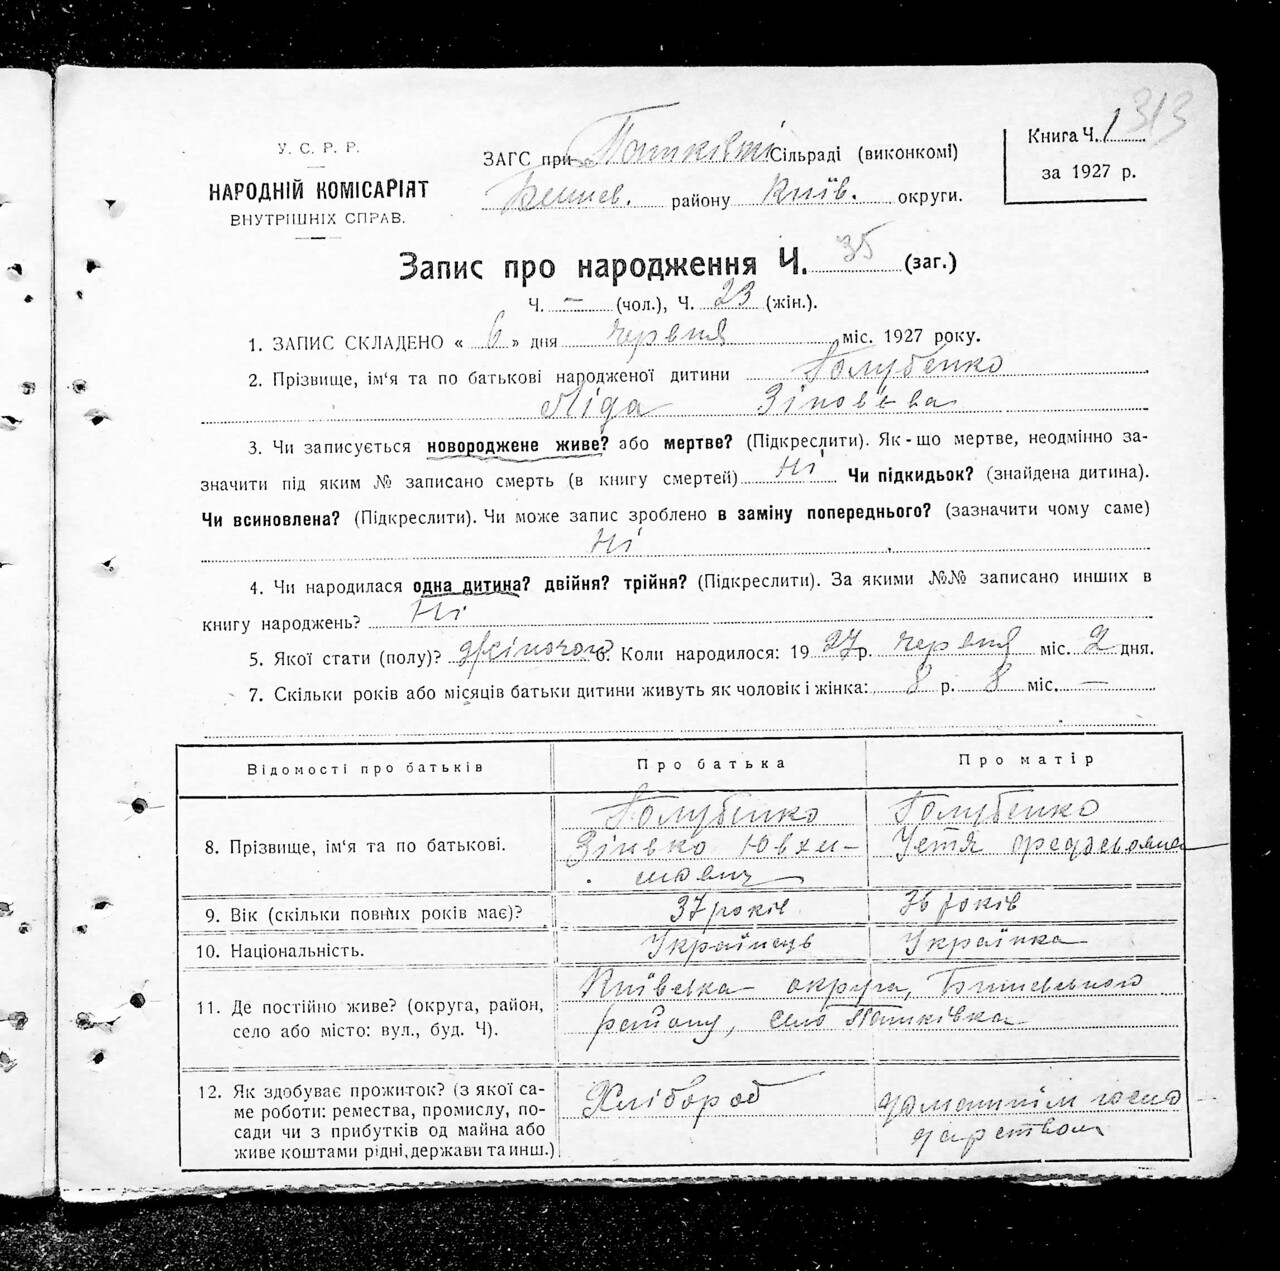 313
У. С. Р. Р.
НАРОДНІЙ КОМІСАРІЯТ
ВНУТРІШНІХ СПРАВ.
ЗАГС при Пашківській Сільраді (виконкомі)
Бишев. району Київ. округи.
Книга Ч. 1
за 1927 р.
Запис про народження Ч. 35 (заг.)
Ч. — (чол.), Ч. 23 (жін.).
1. ЗАПИС СКЛАДЕНО « 6 » дня червня міс. 1927 року.
2. Прізвище, ім'я та по батькові народженої дитини Голубенко
Ліда Зіновʼєва
3. Чи записується новороджене живе? або мертве? (Підкреслити). Як-що мертве, неодмінно за-
значити під яким № записано смерть (в книгу смертей) Ні Чи підкидьок? (знайдена дитина).
Чи всиновлена? (Підкреслити). Чи може запис зроблено в заміну попереднього? (зазначити чому саме)
Ні
4. Чи народилася одна дитина? двійня? трійня? (Підкреслити). За якими №№ записано инших в
книгу народжень? Ні
5. Якої стати (полу)? жіночою 6. Коли народилося: 1927 р. червня міс. 2 дня.
7. Скільки років або місяців батьки дитини живуть як чоловік і жінка: 8 р. 8 міс. —
Відомості про батьків Про батька Про матір
8. Прізвище, ім'я та по батькові.
Голубенко
Зінько Юхи-
мович
Голубенко
Устя
9. Вік (скільки повних років має)? 37 років 36 років
10. Національність. Українець Українка
11. Де постійно живе? (округа, район,
село або місто: вул., буд. Ч).
Київська округа, Бишевського
району, село Пашківка
12. Як здобуває прожиток? (з якої са-
ме роботи: ремества, промислу, по-
сади чи з прибутків од майна або
живе коштами рідні, держави та инш.)
Хлібороб
домашнім госпо
дарством